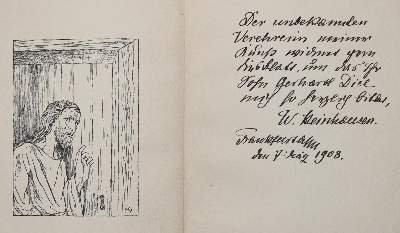 Der unbekannten
Verehrerin meiner
Kunst widme gern
um das Ihr
Sohn Gerhard Diel
mich so herzlich bittet,
W. Steinhausen.
Frankfurt a/M
den 7. März 1908.